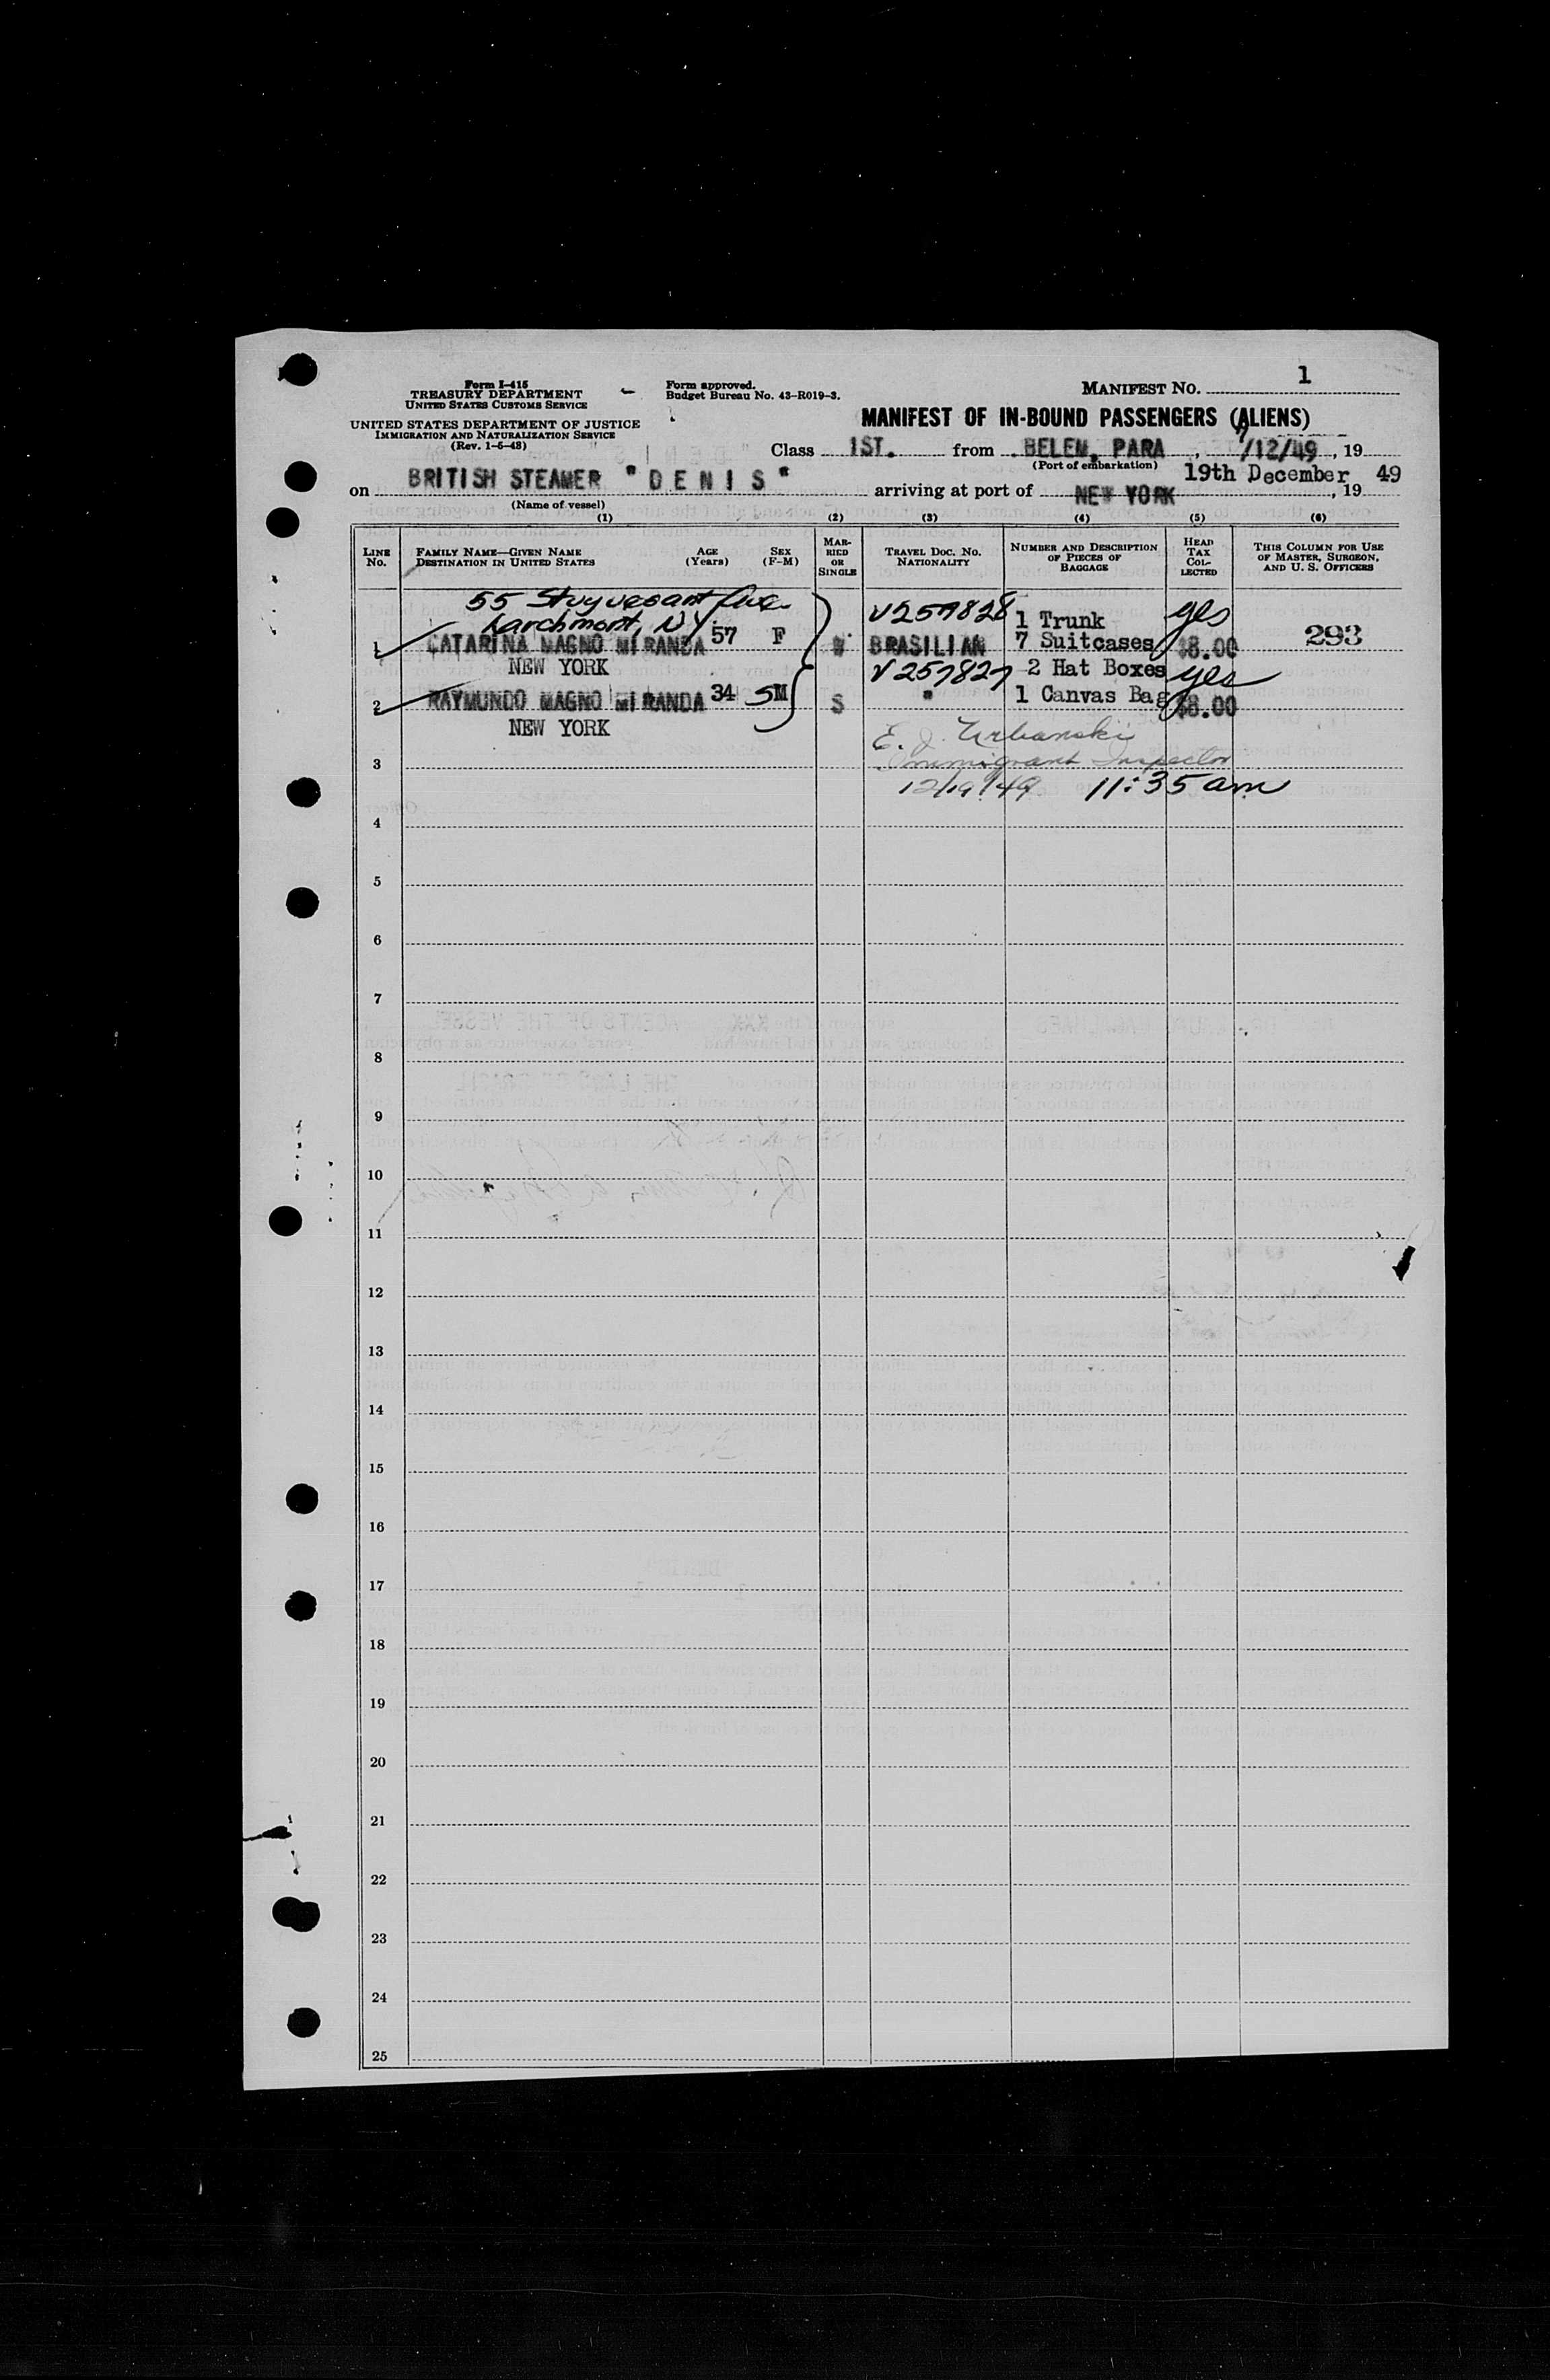 Form I-415
TREASURY DEPARTMENT
UNITED STATES CUSTOMS SERVICE
UNITED STATES DEPARTMENT OF JUSTICE
IMMIGRATION AND NATURALIZATION SERVICE
(Rev. 1-5-48)
Form approved.
Budget Bureau No. 43-R019-3.
MANIFEST NO. 1
MANIFEST OF IN-BOUND PASSENGERS (ALIENS)
Class 1ST. from BELEM, PARA , 7/12/49 , 19
(Port of embarkation)
on BRITISH STEAMER "DENIS" arriving at port of NEW YORK 19th December , 19 49
(Name of vessel)
(1) (2) (3) (4) (5) (6)
LINE NO. FAMILY NAME—GIVEN NAME DESTINATION IN UNITED STATES AGE (Years) SEX (F-M) MARRIED OR SINGLE TRAVEL DOC. NO. NATIONALITY NUMBER AND DESCRIPTION OF PIECES OF BAGGAGE HEAD TAX COLLECTED THIS COLUMN FOR USE OF MASTER, SURGEON, AND U. S. OFFICERS
55 Stuyvesant Ave. V257828 1 Trunk yes
Larchmont, NY
1 CATARINA MAGNO MIRANDA 57 F BRASILIAN 7 Suitcases $8.00 293
NEW YORK V257827 2 Hat Boxes yes
2 RAYMUNDO MAGNO MIRANDA 34 SM S " 1 Canvas Bag $8.00
NEW YORK
E. J. Urbanski
3 Immigrant Inspector
12/19/49 11:35 am
4
5
6
7
8
9
10
11
12
13
14
15
16
17
18
19
20
21
22
23
24
25